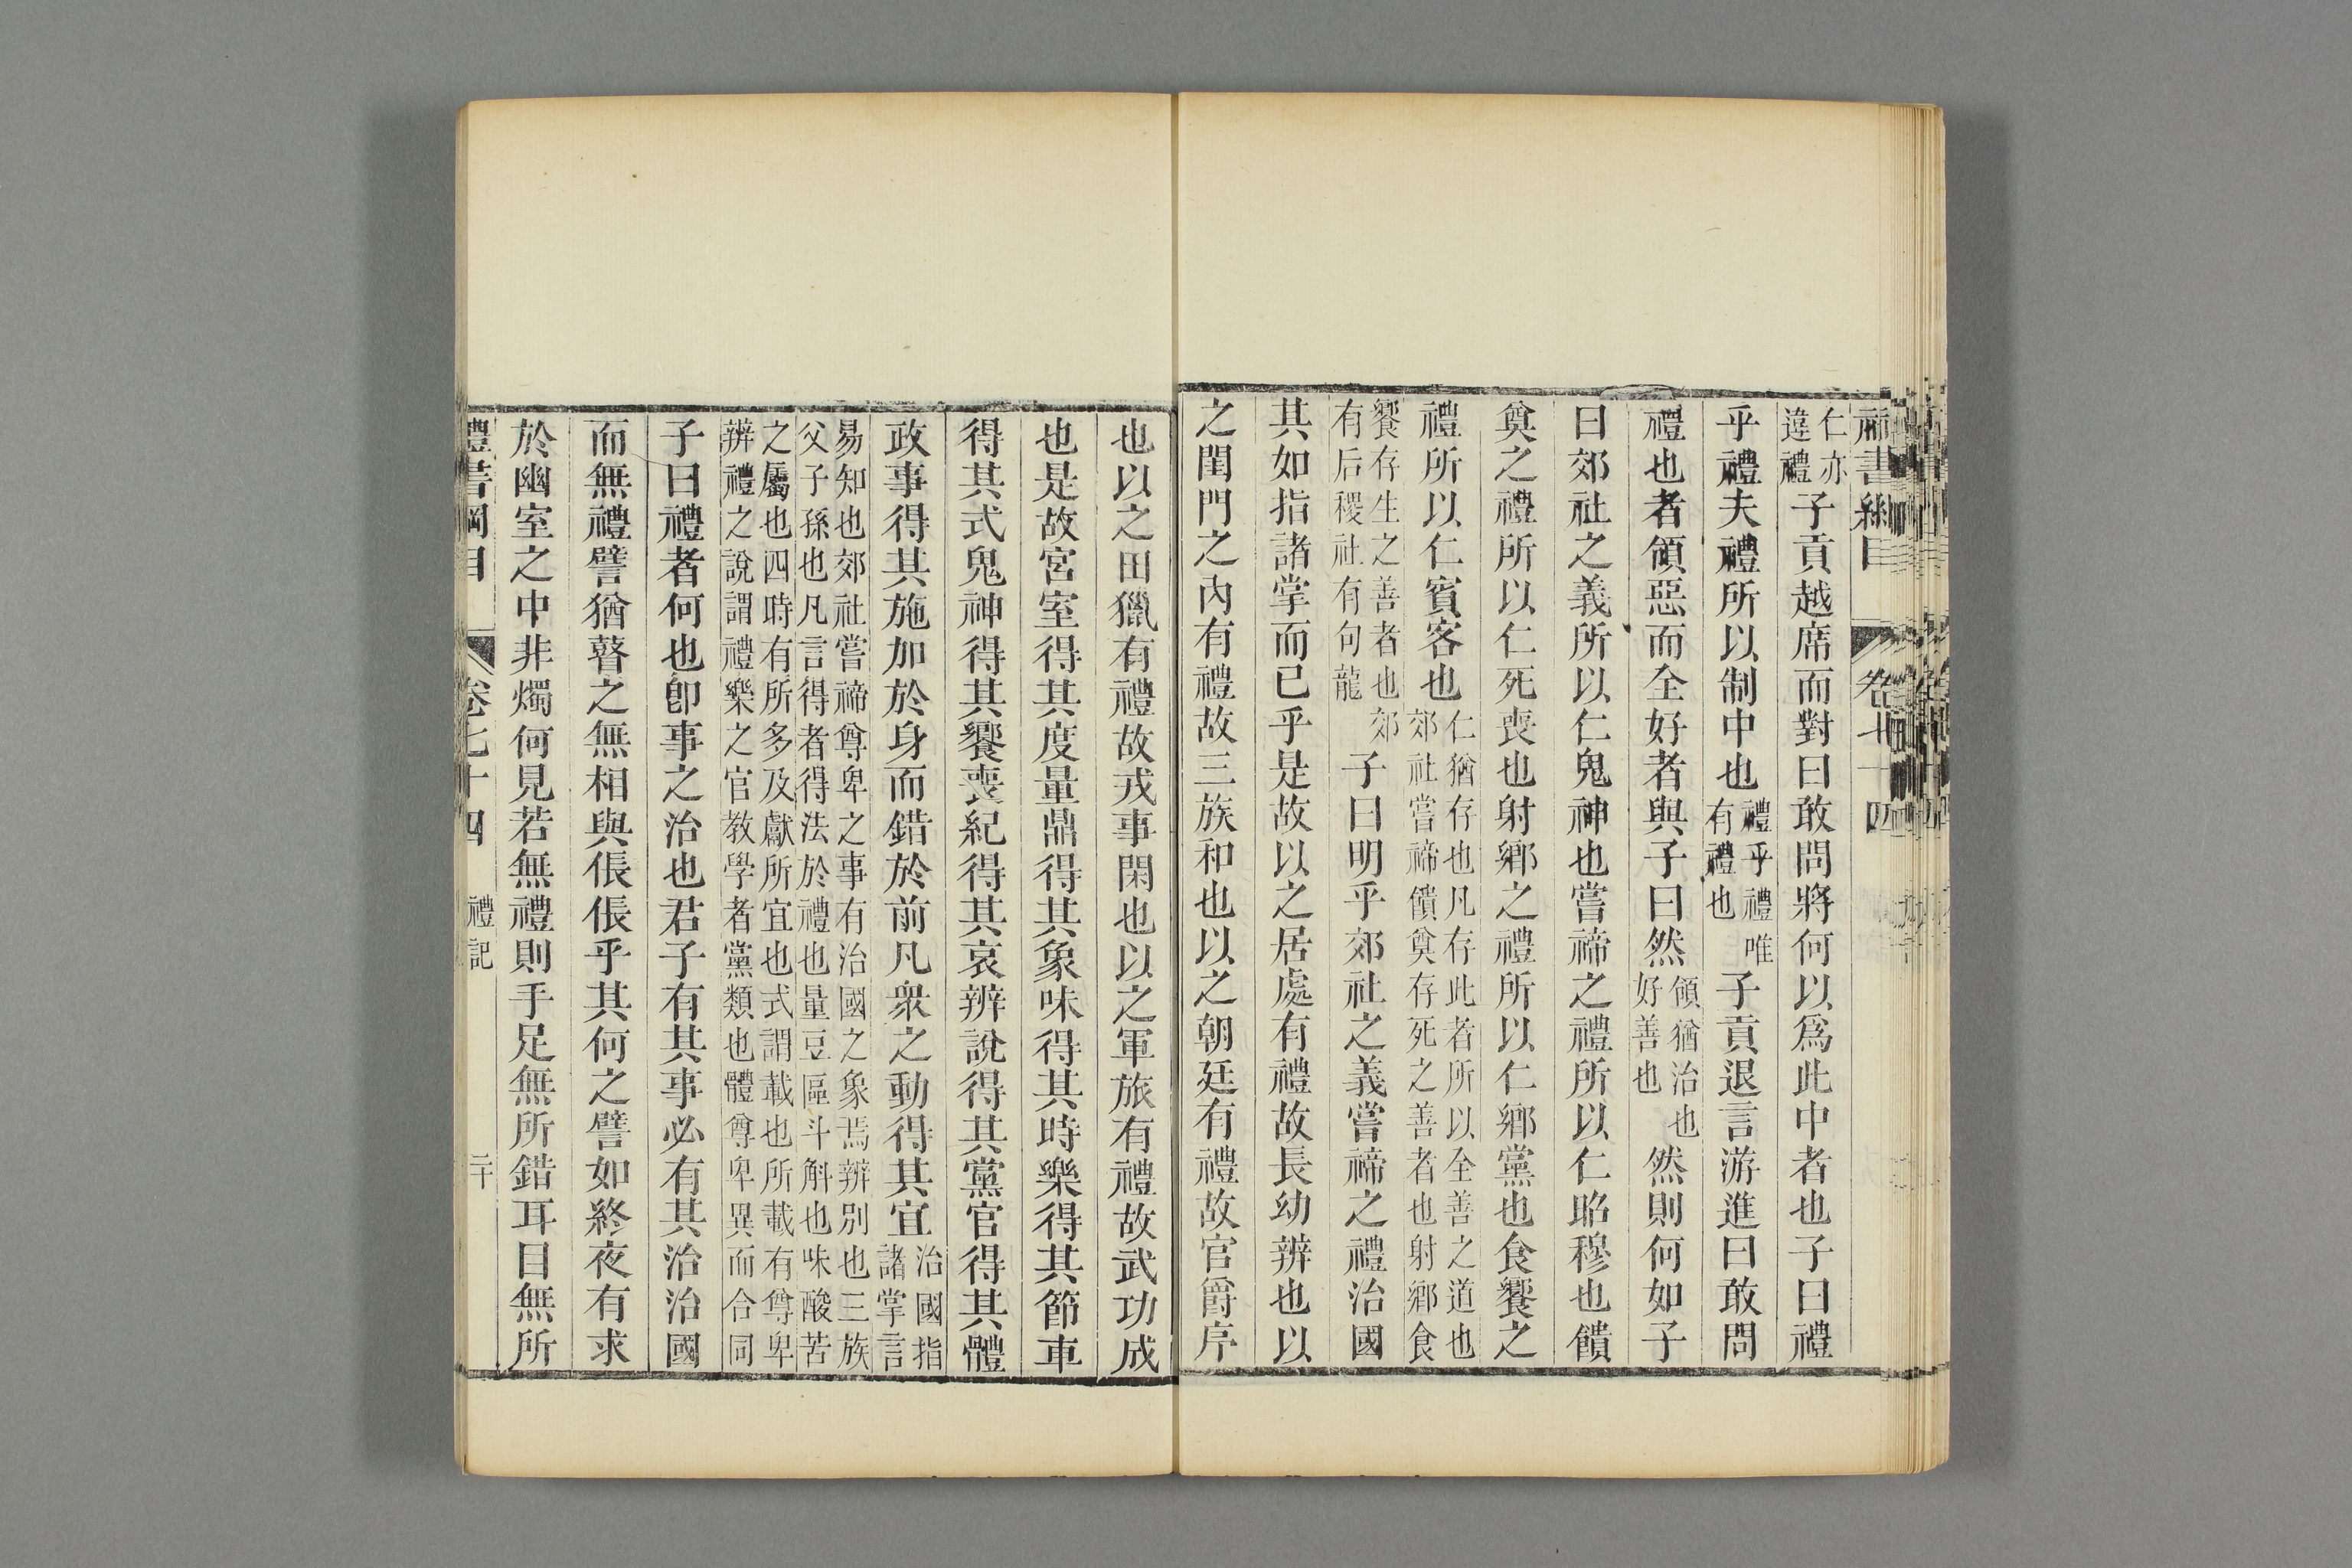 禮書綱目 卷七十四
仁亦違禮子貢越席而對曰敢問將何以爲此中者也子曰禮
乎禮夫禮所以制中也禮乎禮唯有禮也子貢退言游進曰敢問
禮也者領惡而全好者與子曰然領猶治也好善也然則何如子
曰郊社之義所以仁鬼神也嘗禘之禮所以仁昭穆也饋
奠之禮所以仁死喪也射鄉之禮所以仁鄉黨也食饗之
禮所以仁賓客也仁猶存也凡存此者所以全善之道也郊社嘗禘饋奠存死之善者也射鄉食
饗存生之善者也郊有后稷社有句龍子曰明乎郊社之義嘗禘之禮治國
其如指諸掌而已乎是故以之居處有禮故長幼辨也以
之閨門之內有禮故三族和也以之朝廷有禮故官爵序
也以之田獵有禮故戎事閑也以之軍旅有禮故武功成
也是故宮室得其度量鼎得其象味得其時樂得其節車
得其式鬼神得其饗喪紀得其哀辨說得其黨官得其體
政事得其施加於身而錯於前凡衆之動得其宜治國指諸掌言
易知也郊社嘗禘尊卑之事有治國之象焉辨別也三族父子孫也凡言得者得法於禮也量豆區斗斛也味酸苦
之屬也四時有所多及獻所宜也式謂載也所載有尊卑辨禮之說謂禮樂之官教學者黨類也體尊卑異而合同
子曰禮者何也卽事之治也君子有其事必有其治治國
而無禮譬猶瞽之無相與倀倀乎其何之譬如終夜有求
於幽室之中非燭何見若無禮則手足無所錯耳目無所
禮書綱目 卷七十四 禮記 二十